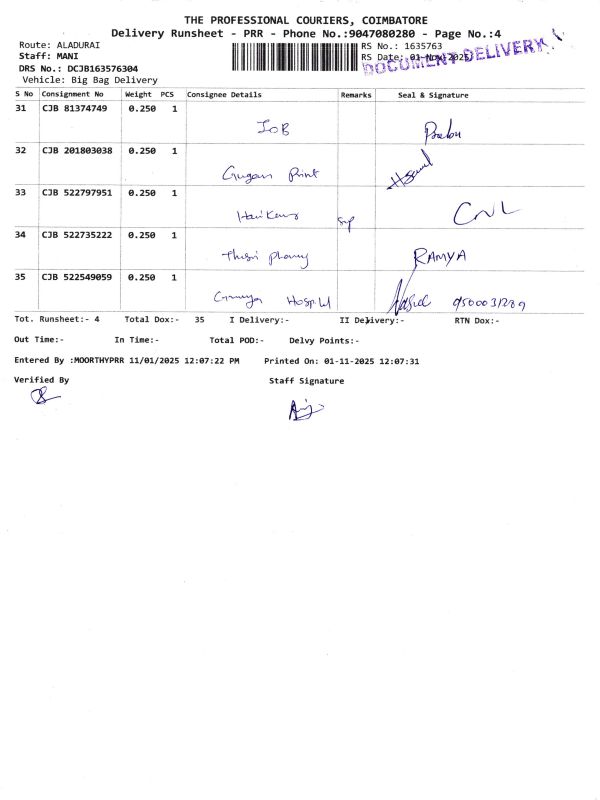 THE PROFESSIONAL COURIERS, COIMBATORE
Delivery Runsheet - PRR - Phone No.:9047080280 - Page No.:4
Route: ALADURAI
RS No.: 1635763
Staff: MANI
RS Date: 01-Nov-2025
DOCUMENT DELIVERY
DRS No.: DCJB163576304
Vehicle: Big Bag Delivery
S No Consignment No Weight PCS Consignee Details Remarks Seal & Signature
31 CJB 81374749 0.250 1
IOB
32 CJB 201803038 0.250 1
Gugan Print
33 CJB 522797951 0.250 1
CNL
34 CJB 522735222 0.250 1
RAMYA
35 CJB 522549059 0.250 1
Hospital
Tot. Runsheet:- 4 Total Dox:- 35 I Delivery:- II Delivery:- RTN Dox:-
Out Time:- In Time:- Total POD:- Delvy Points:-
Entered By :MOORTHYPRR 11/01/2025 12:07:22 PM Printed On: 01-11-2025 12:07:31
Verified By Staff Signature